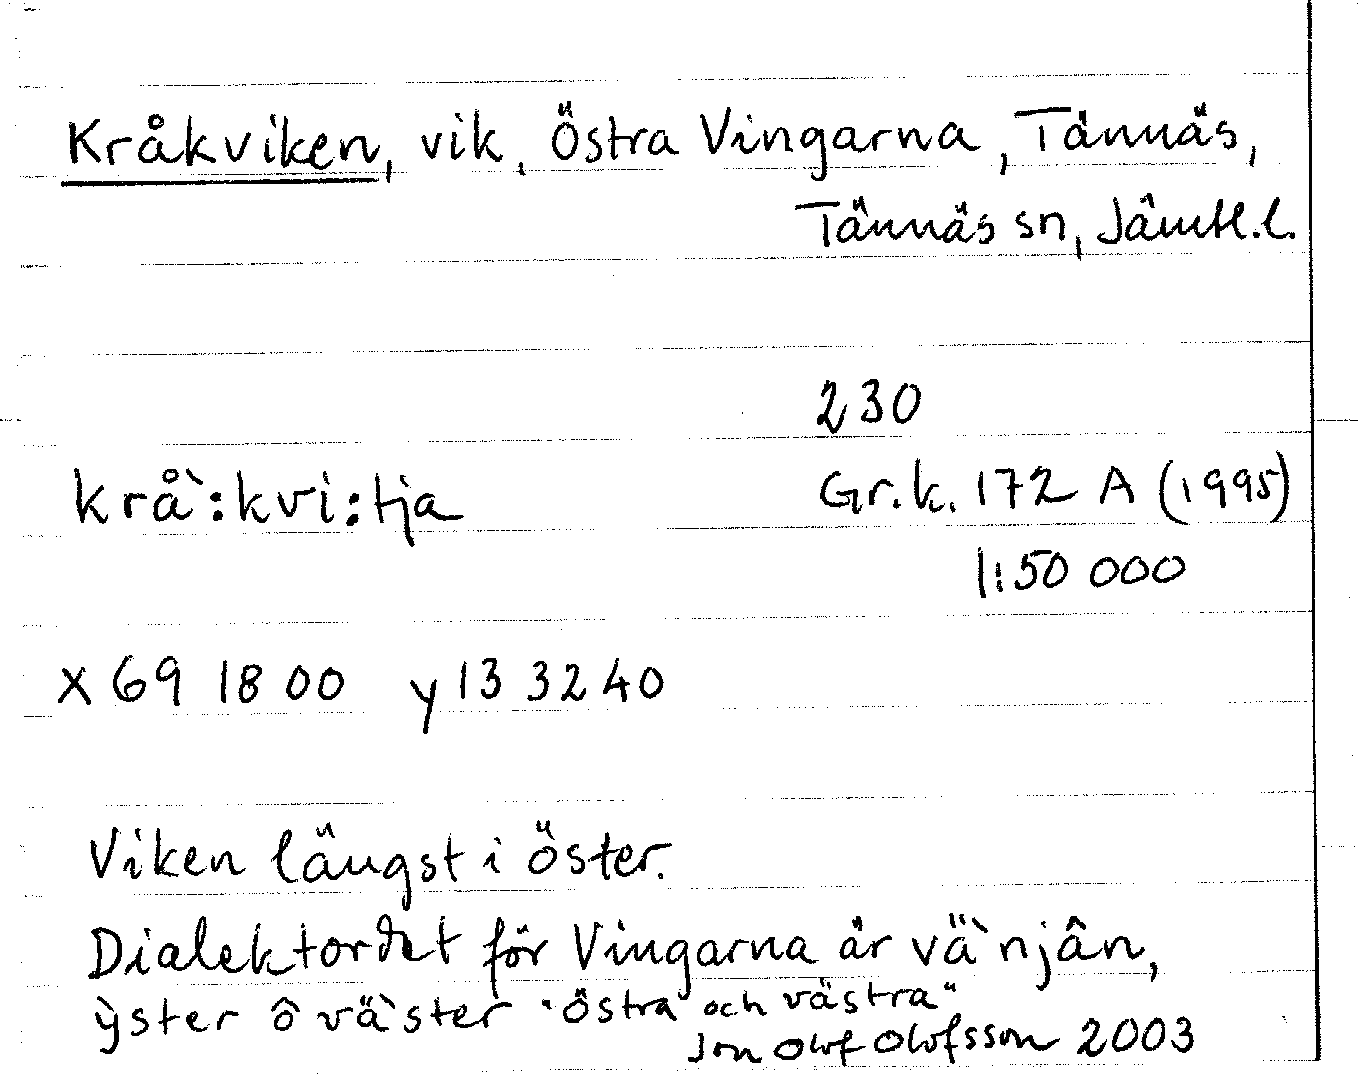 Kråkviken, vik, Östra Vingarna, Tännäs,
Tännäs sn, Jämtl.l.
230
krå`:kvi:tja Gr.k. 172 A (1995)
1:50 000
x 69 18 00 y 13 32 40
Viken längst i öster.
Dialektordet för Vingarna är vä`njân,
ỳster ô vä`ster "östra och västra"
Jon Olof Olofsson 2003